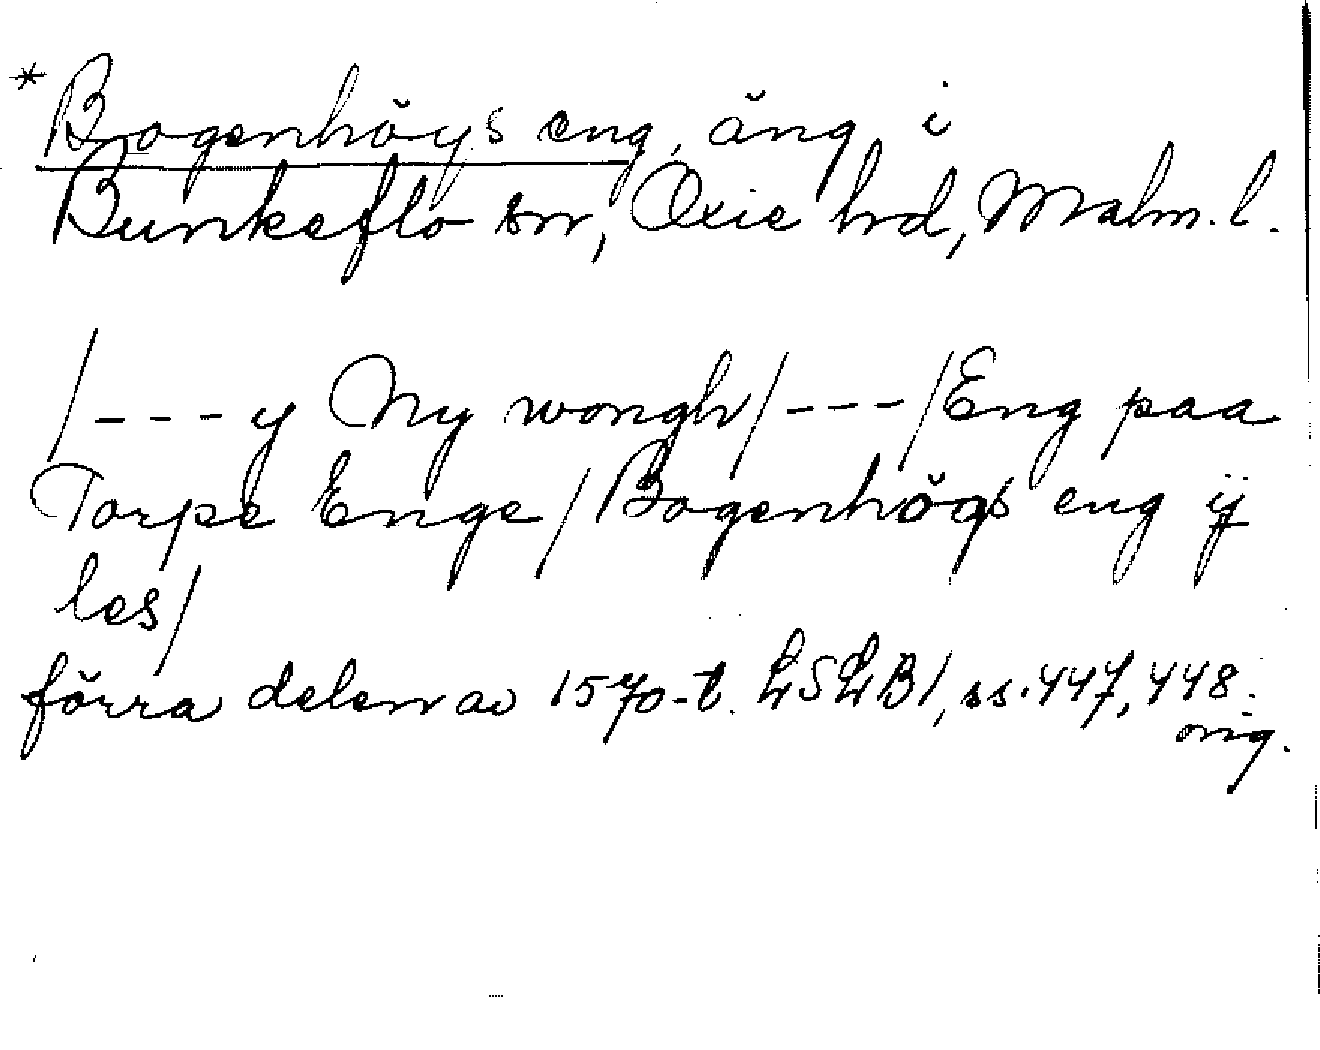 * Bogenhöys eng, äng i
Bunkeflo sn, Oxie hd, Malm. l.
/---y Ny wongh/---/Eng paa
Torpe Enge/Bogenhögs eng ij
les/
förra delen av 1570-t. LSLB1, ss. 447, 448.
orig.